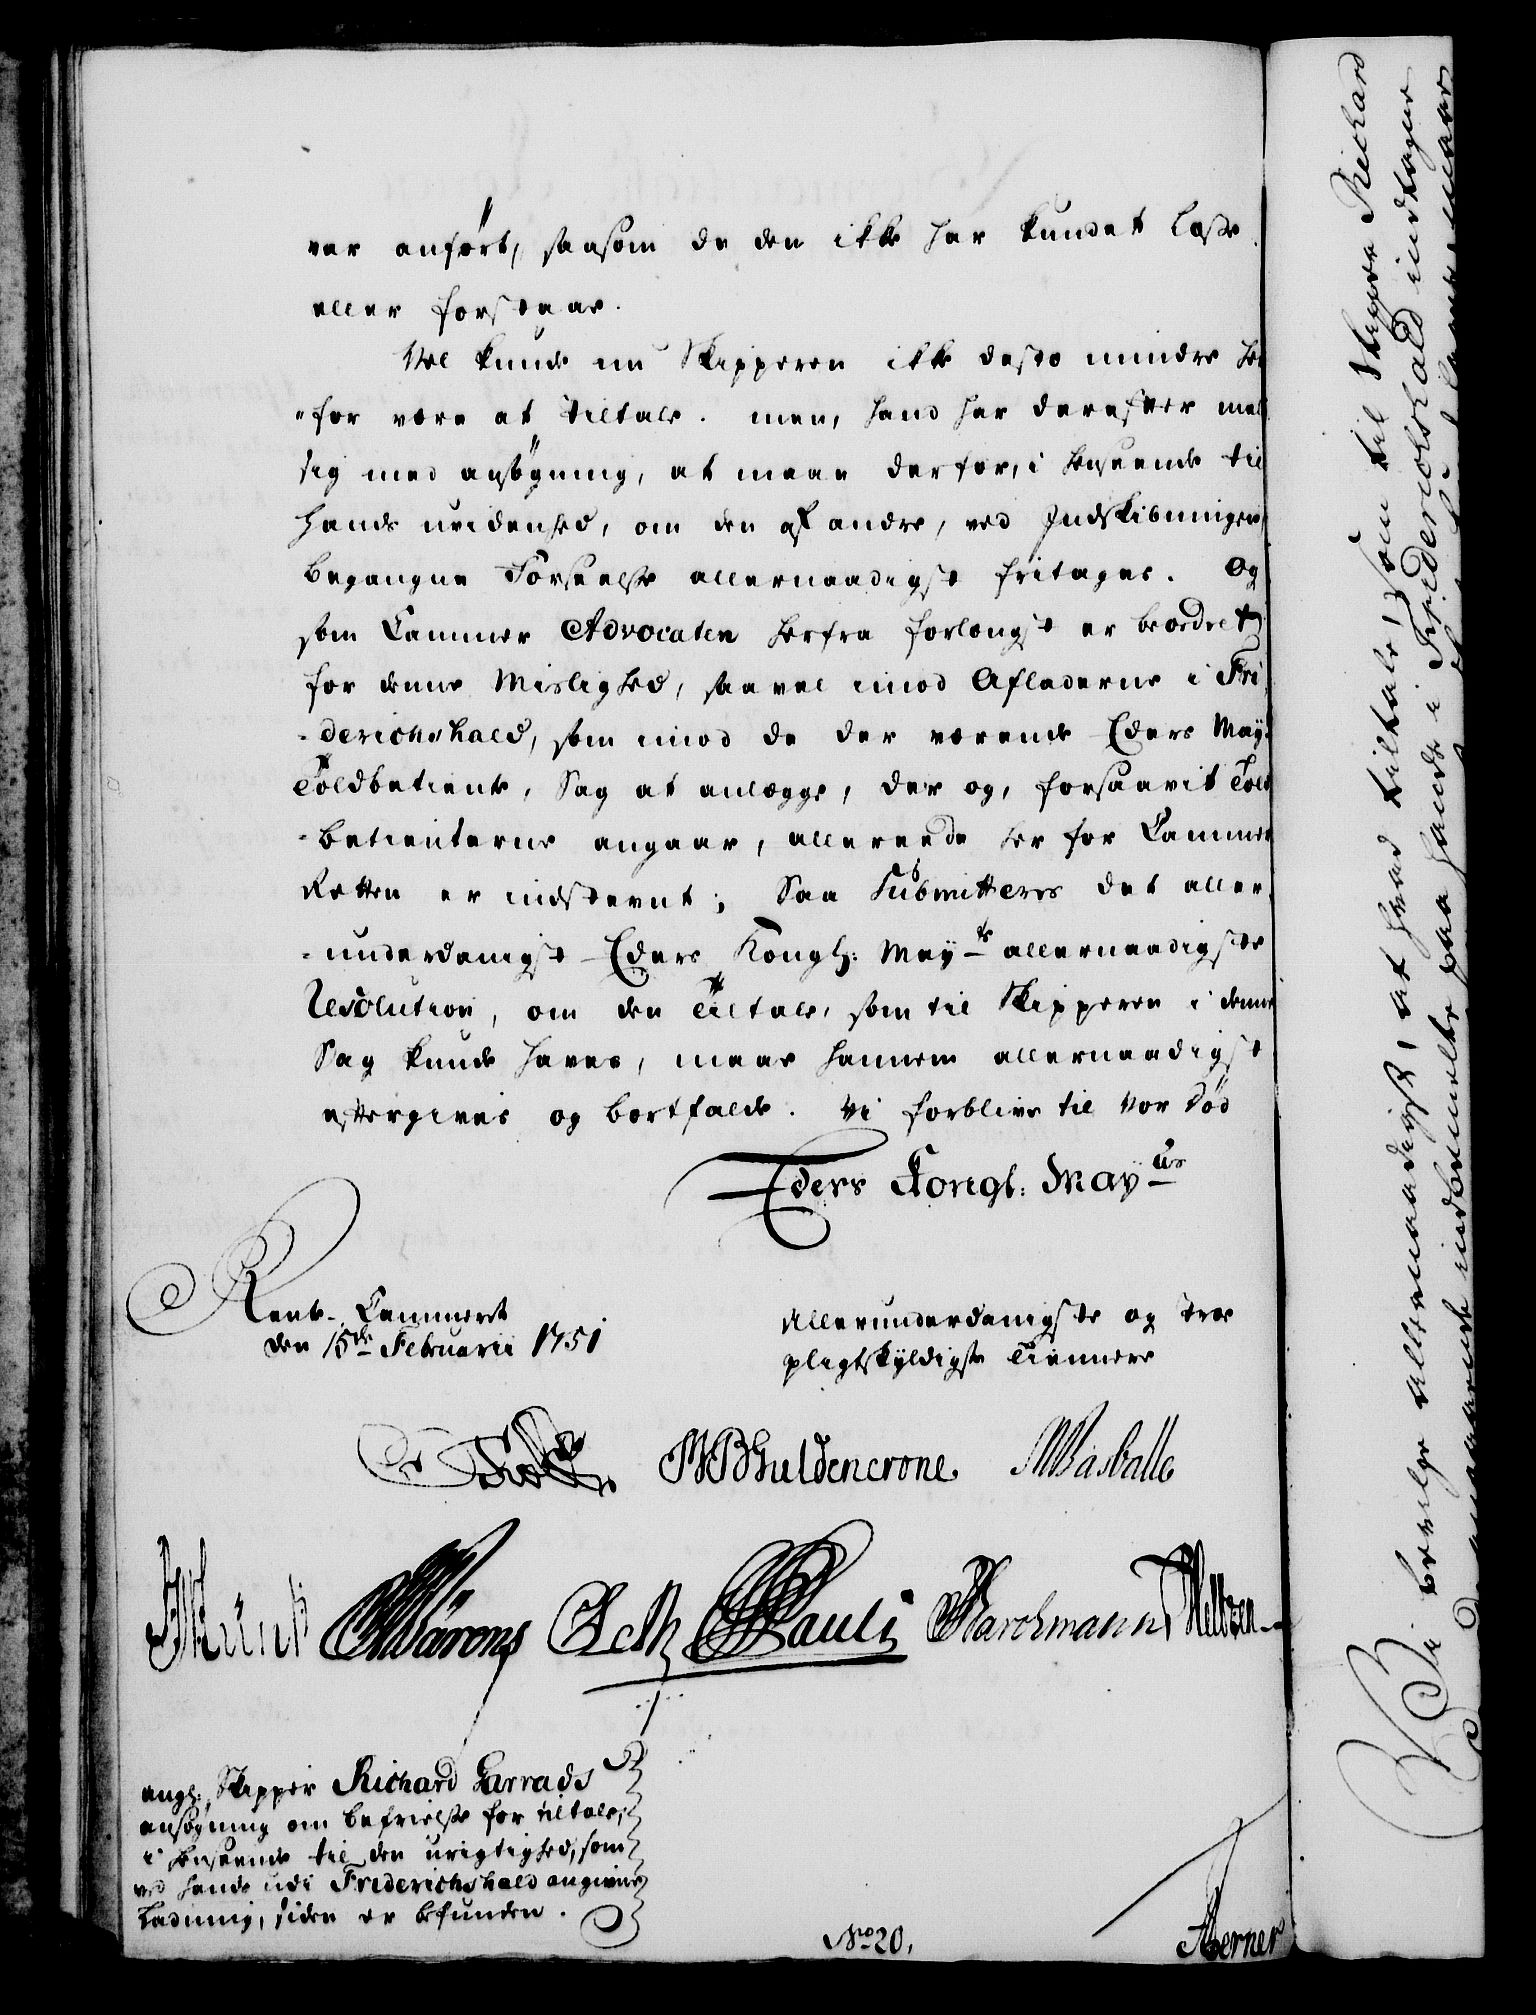 var anført, saasom de den ikke har kundet læse
eller forstaae.
Vel kunde nu Skipperen ikke desto mindre her
-for være at tiltale. men, hand har derefter meldt
sig med ansøgning, at maae derfor, i henseende til
hands uvidenhed, om den af andre, ved Indskibningen
begangne Forseelse allernaadigst fritages. Og
som Cammer Advocaten herfra forlængst er beordret,
for denne Mislighed, saavel imod Afladerne i Fri
-derichshald, som imod de der værende Eders Mayts
Toldbetiente, Sag at anlægge, der og, forsaavit Told
-betienterne angaar, allereede her for Cammer
Retten er indstevnt; Saa Submitteres det aller
-underdanigst Eders Kongl: Mayts allernaadigste
Resolution, om den Tiltale, som til Skipperen i denne
Sag kunde haves, maae hannem allernaadigst
eftergives og bortfalde. Vi forblive til vor død
Eders Kongl: Mayts
Rente-Cammeret
den 15de Februarii 1751
Allerunderdanigste og troe
pligtskyldigste Tiennere
WBGuldencrone. MBasballe
Wärens Pauli Marchmann
angl: Skipper Richard Garrads
ansøgning om befrielse for tiltale,
i henseende til den urigtighed, som
ved hands udi Friderichshald angivne
Ladning, siden er befunden.
No 20.
Berner
Vi bevilge allernaadigst, at hvad tiltale, som til Skipper Richard
i Friderichshald indtagne